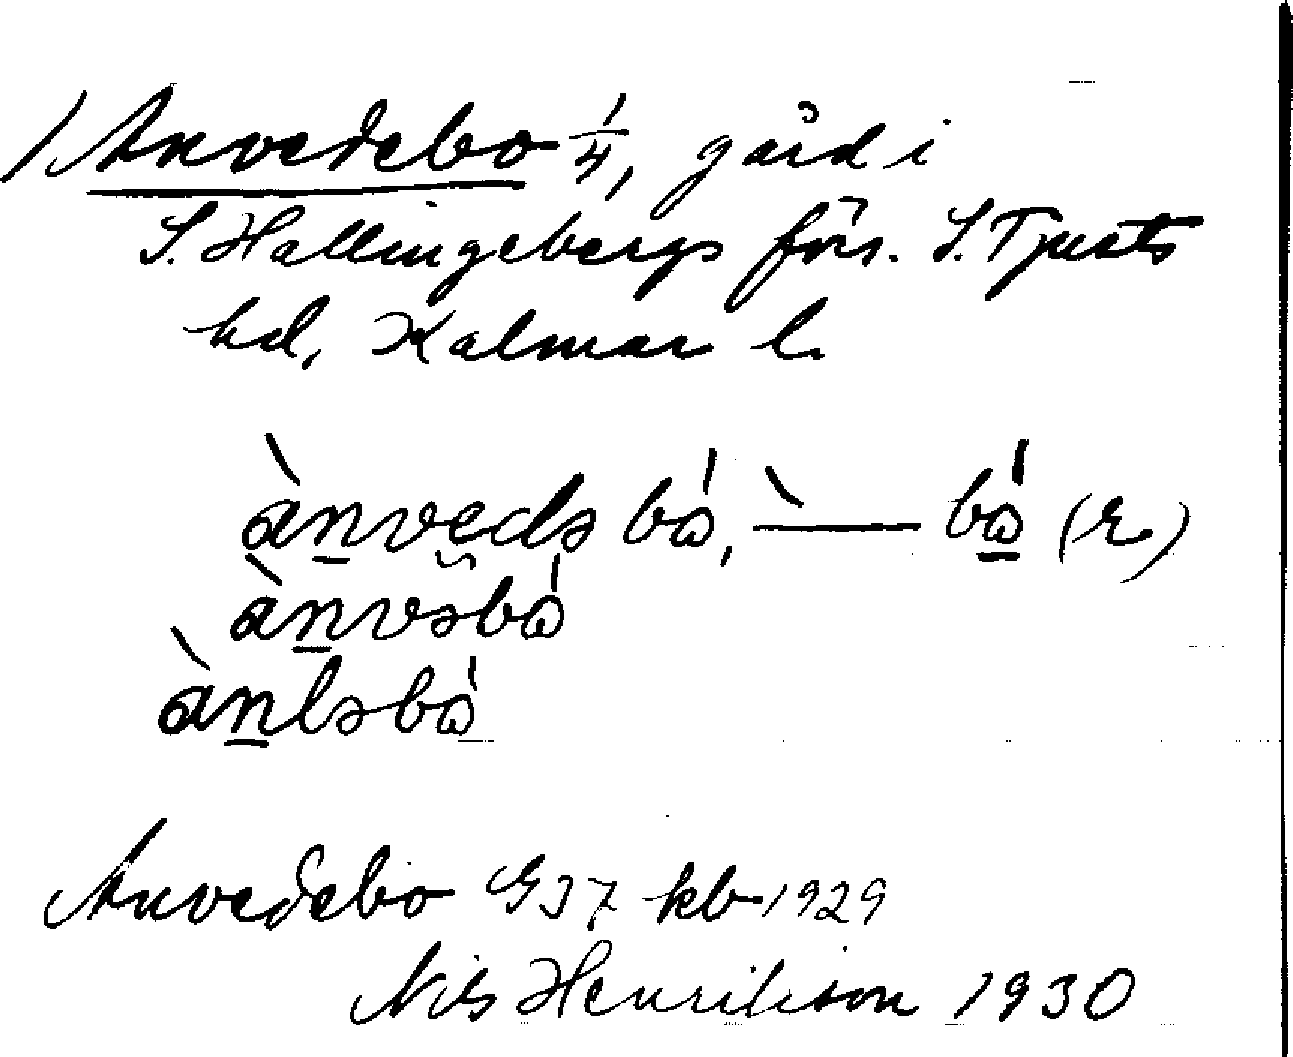 /Anvedebo 1/4, gård i
S. Hallingebergs förs. S. Tjusts
hd, Kalmar l.
ànvedə bώ, ̀— bώ (r)
ànvəbώ
ànləbώ
Anvedebo G J 7 kb 1929
Nils Henrikson 1930